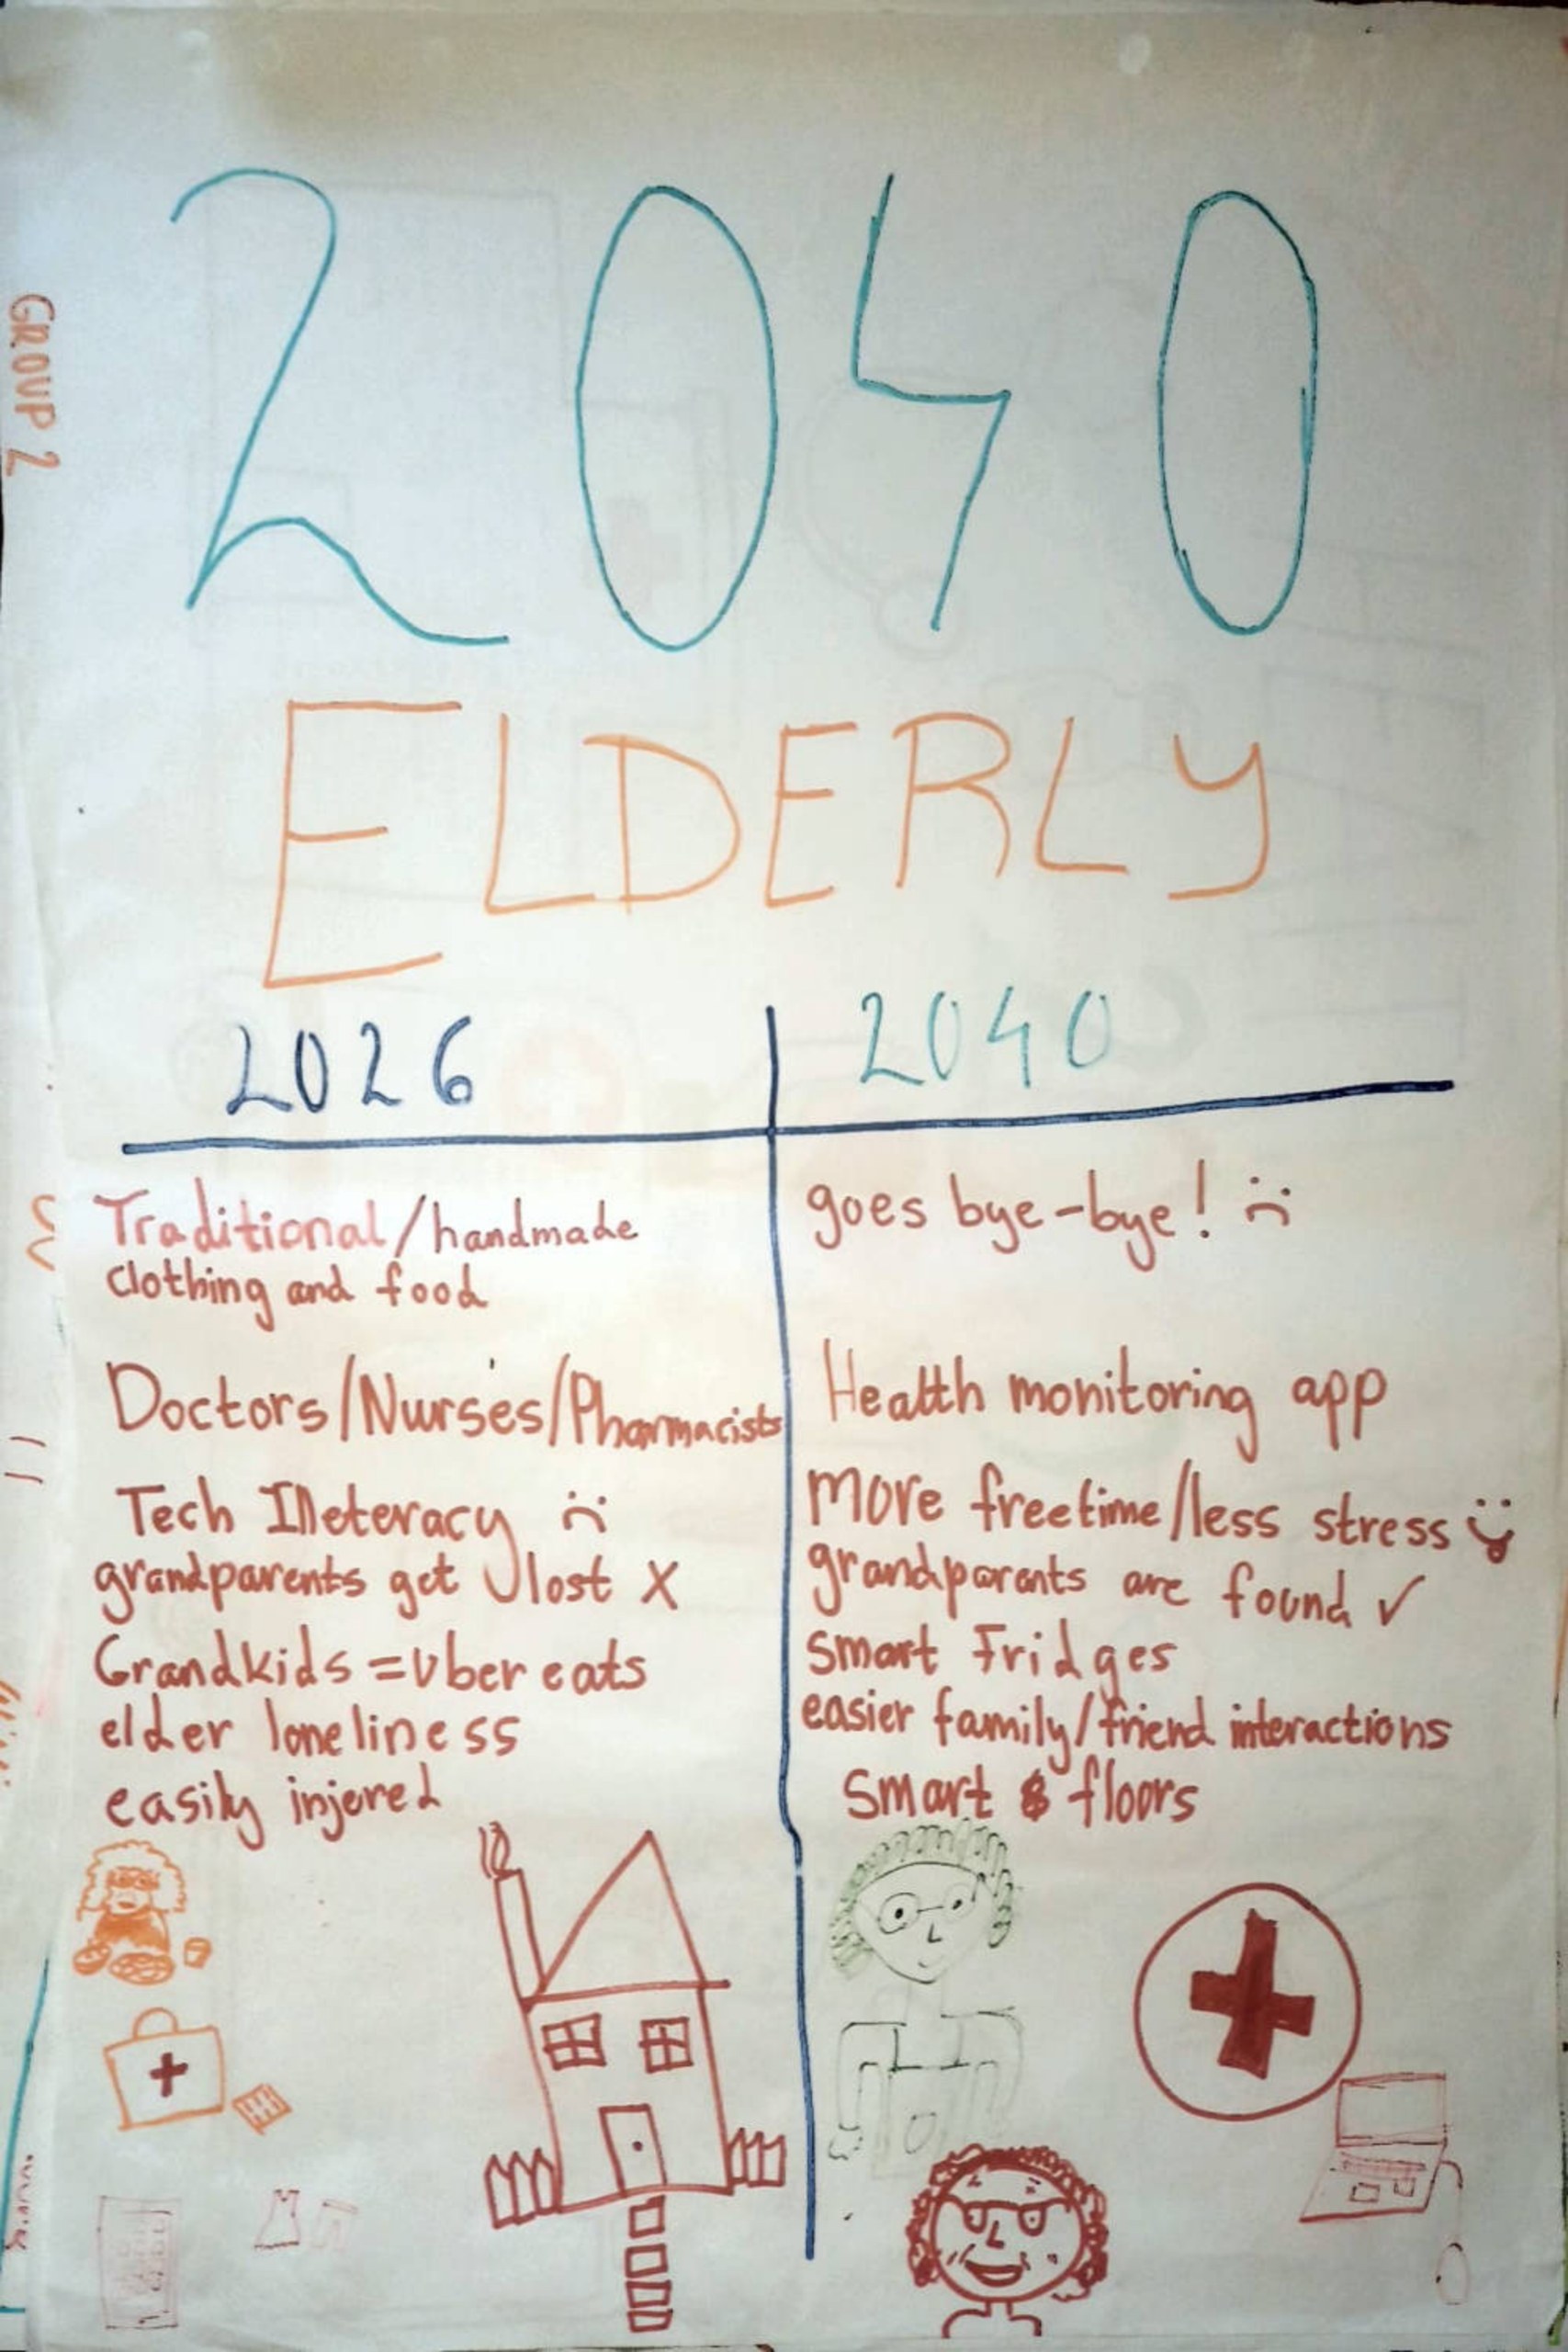 GROUP 2
2040
ELDERLY
2026
2040
Traditional/handmade
clothing and food
goes bye-bye! :(
Doctors/Nurses/Pharmacists
Health monitoring app
Tech Illeteracy :(
More freetime/less stress :)
grandparents get lost X
grandparants are found ✓
Grandkids = Uber eats
Smart Fridges
elder loneliness
easier family/friend interactions
easily injered
Smart floors